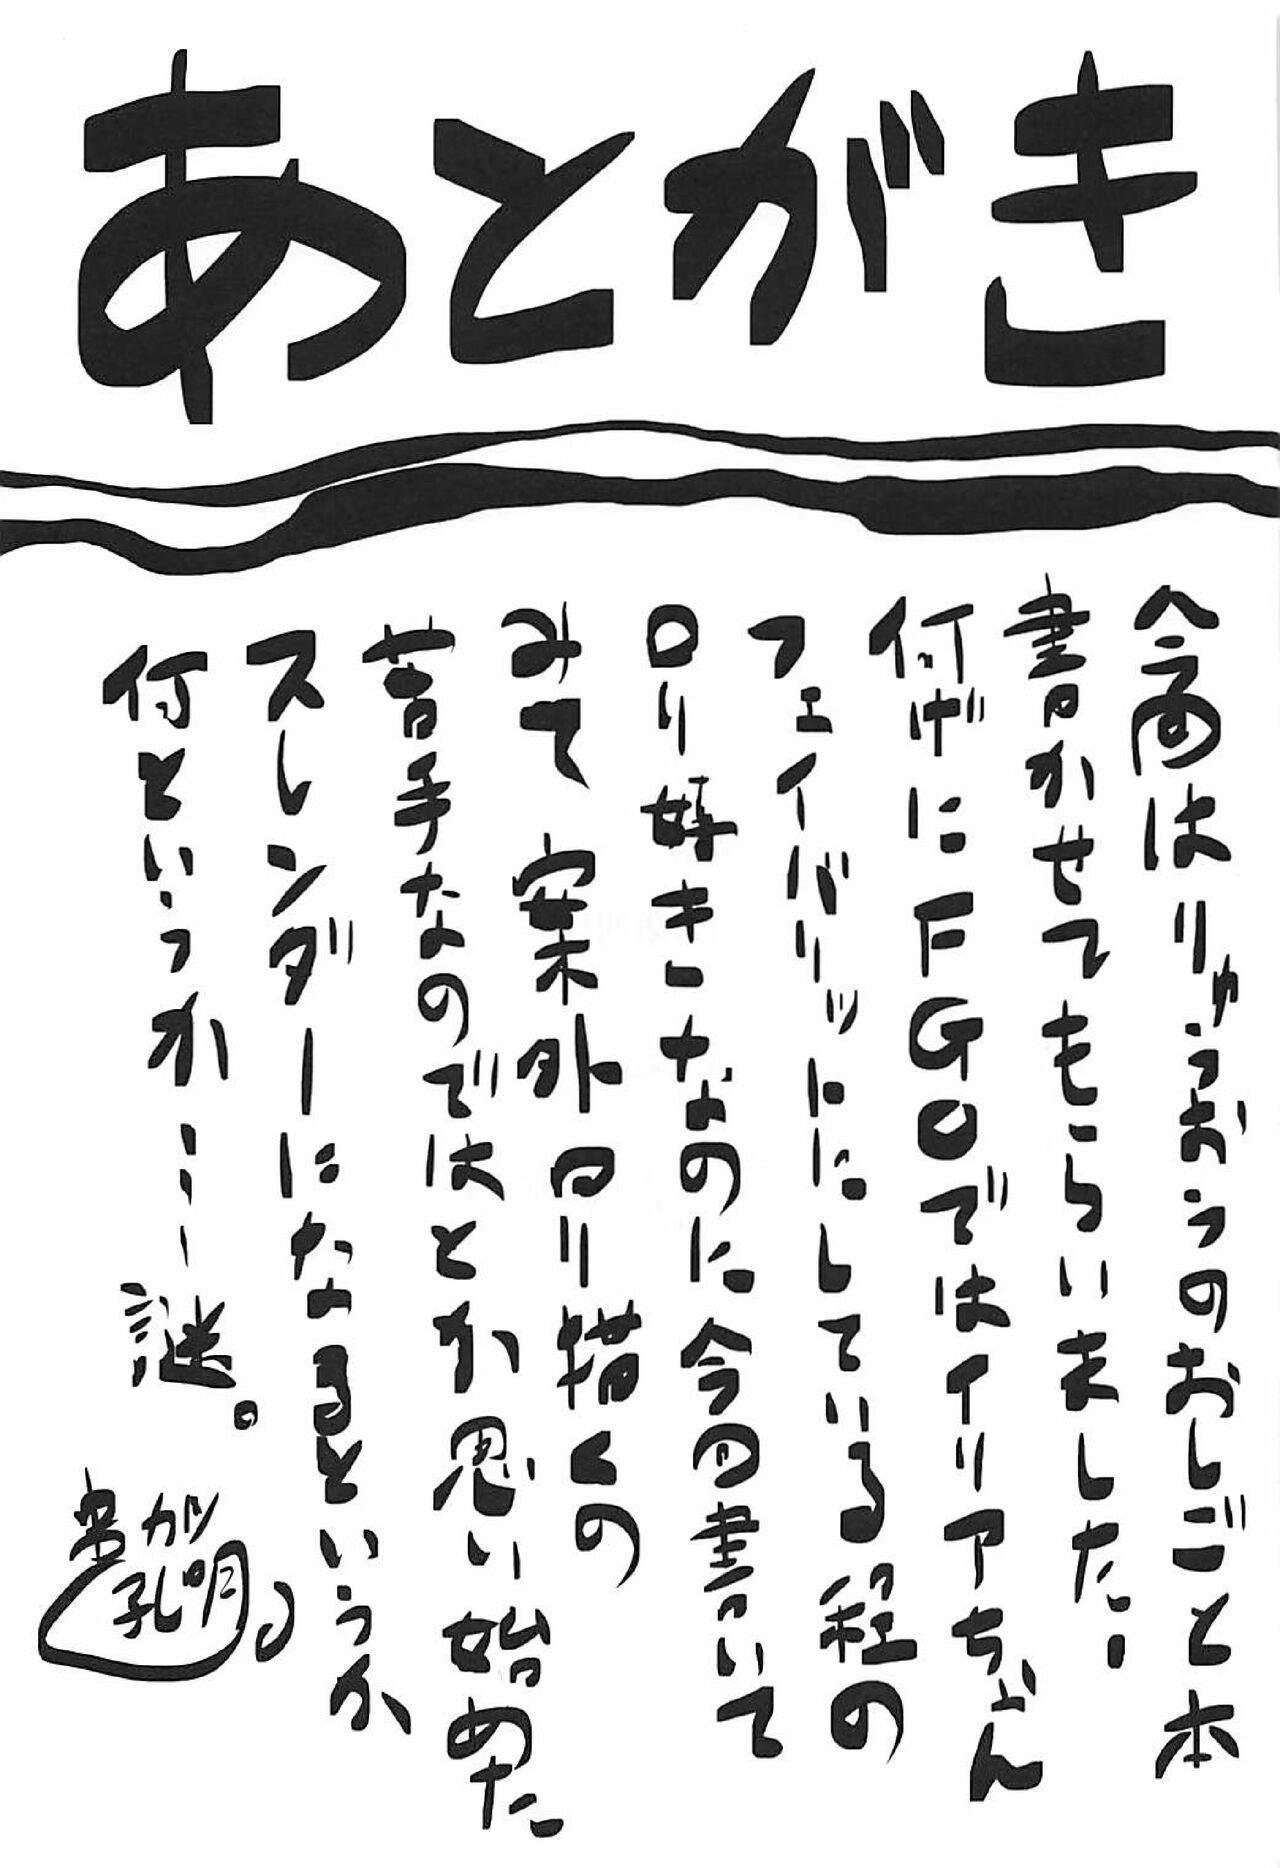 あとがき
今回はりゅうおうのおしごと本
書かせてもらいました!
何げにFGOではイリアちゃん
フェイバリットにしている程の
ロリ好きーなのに今回書いて
みて 案外ロリ描くの
苦手なのではとか思い始めた
スレンダーになるというか
何というか…謎。
ガッ
孔明